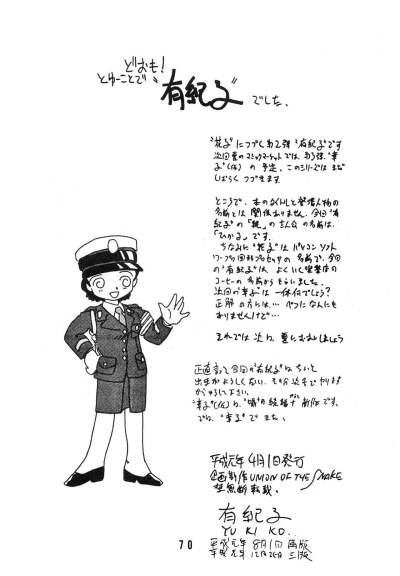 どおも！
とゆーことで
"有紀子"
でした、
"花子"につづく第2弾"有紀子"です
次回夏のコミックマーケットでは、第3弾"幸
子"(仮)の予定、このシリーズはまだ
しばらくつづきます
ところで、本のタイトルと登場人物の
名前とは関係ありません。今回"有
紀子"の
の名前は、
"ひかる"です。
ちなみに"花子"はパソコンソフト
の名前で、今回
の"有紀子"は、よくいく喫茶店の
コーヒーの名前からもらいました。
次回の"幸子"は一体何でしょう？
正解の方には…べつになんにも
ありませんけど…
それでは次は夏にむねしましょう
正直言って今回の"有紀子"は、ちょっと
出来がよろしくない、その分次号でやります
からゆるして下さい。
では、"幸子"でまた。
平成元年4月1日発行
企画制作 UNION OF THE SNAKE
禁無断転載、
有紀子
YU KI KO.
平成元年 8月1日 再版
平成元年 12月26日 三版
70